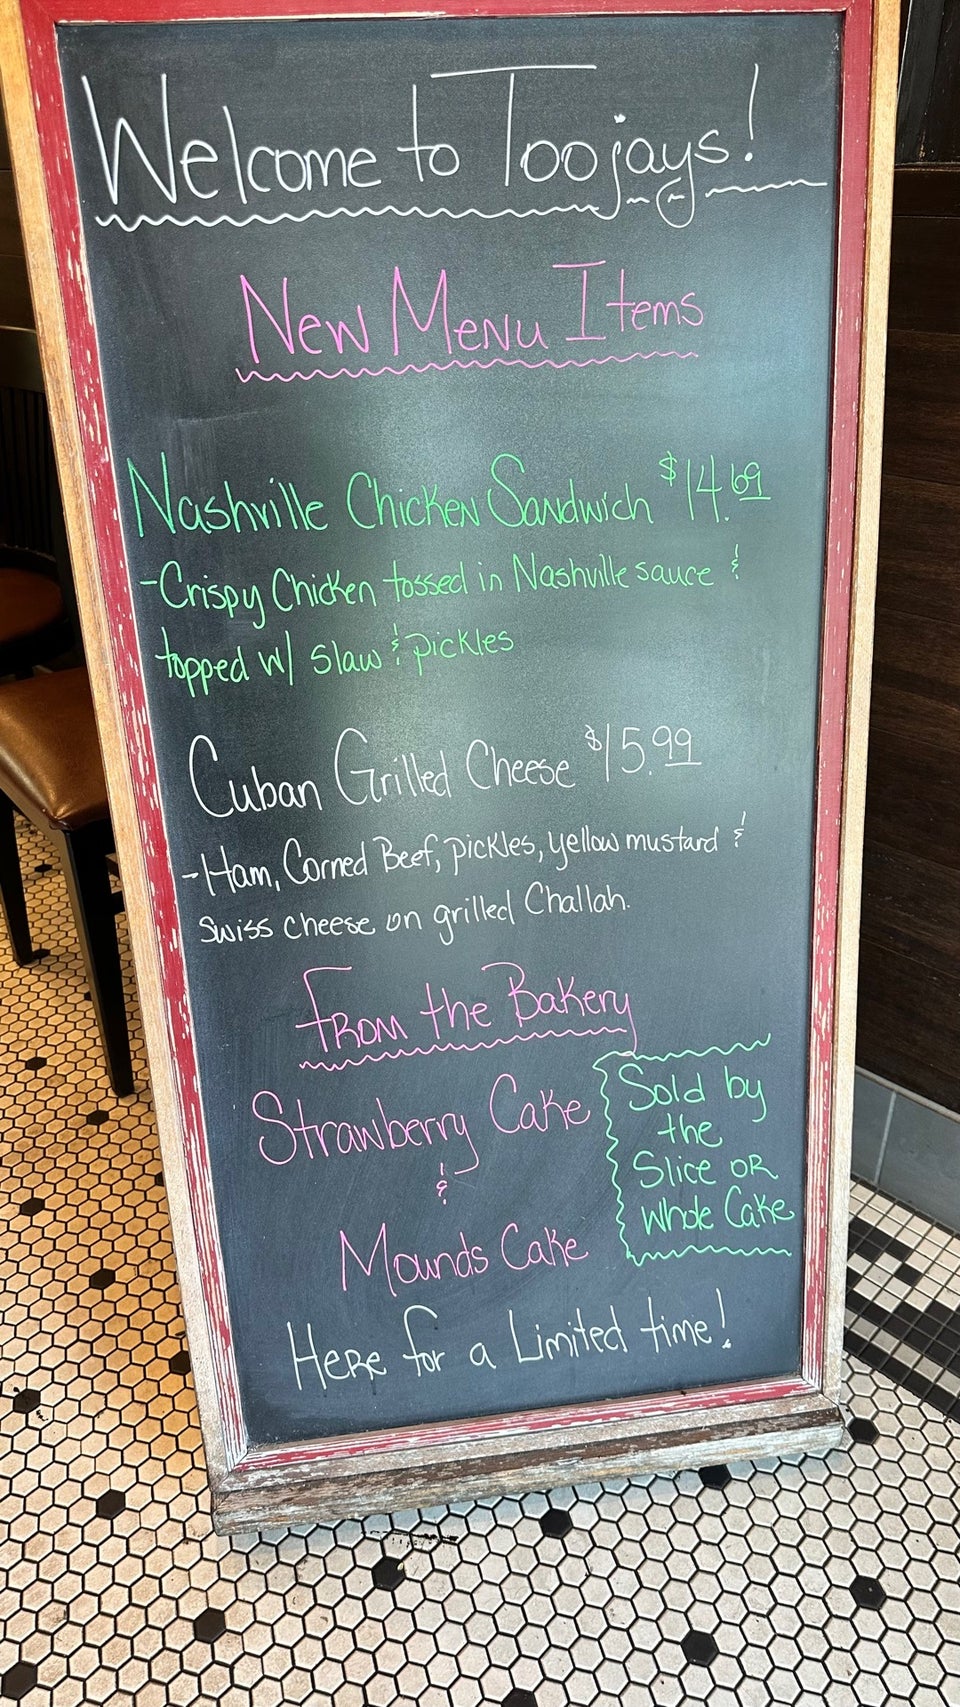 Welcome to Toojays!
New Menu Items
Nashville Chicken Sandwich $14.69
-Crispy Chicken tossed in Nashville sauce &
topped w/ slaw & pickles
Cuban Grilled Cheese $15.99
-Ham, Corned Beef, pickles, yellow mustard &
swiss cheese on grilled Challah.
From the Bakery
Strawberry Cake
&
Mounds Cake
Sold by
the
Slice or
whole Cake
Here for a Limited time!